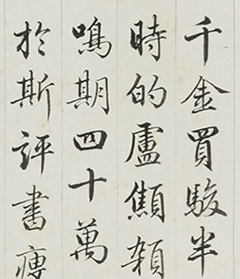 千金買駿半
時的盧
鳴期四十萬
於斯評書瘦